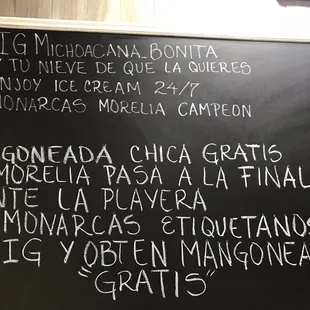 IG MICHOACANA_BONITA
Y TU NIEVE DE QUE LA QUIERES
NJOY ICE CREAM 24/7
MONARCAS MORELIA CAMPEON
GONEADA CHICA GRATIS
MORELIA PASA A LA FINAL
NTE LA PLAYERA
MONARCAS ETIQUETANOS
IG Y OBTEN MANGONEA
"GRATIS"